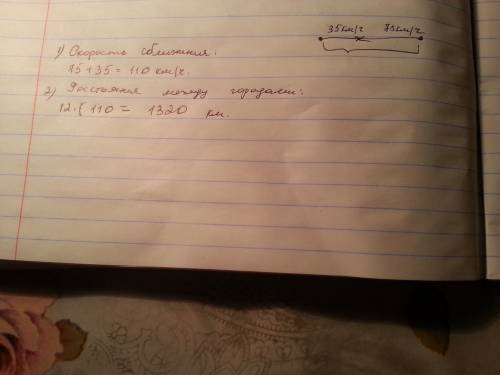 35км/ч 75км/ч
1) Скорость сближения:
75+35 = 110 км/ч.
2) Расстояния между городами:
12·110 = 1320 км.